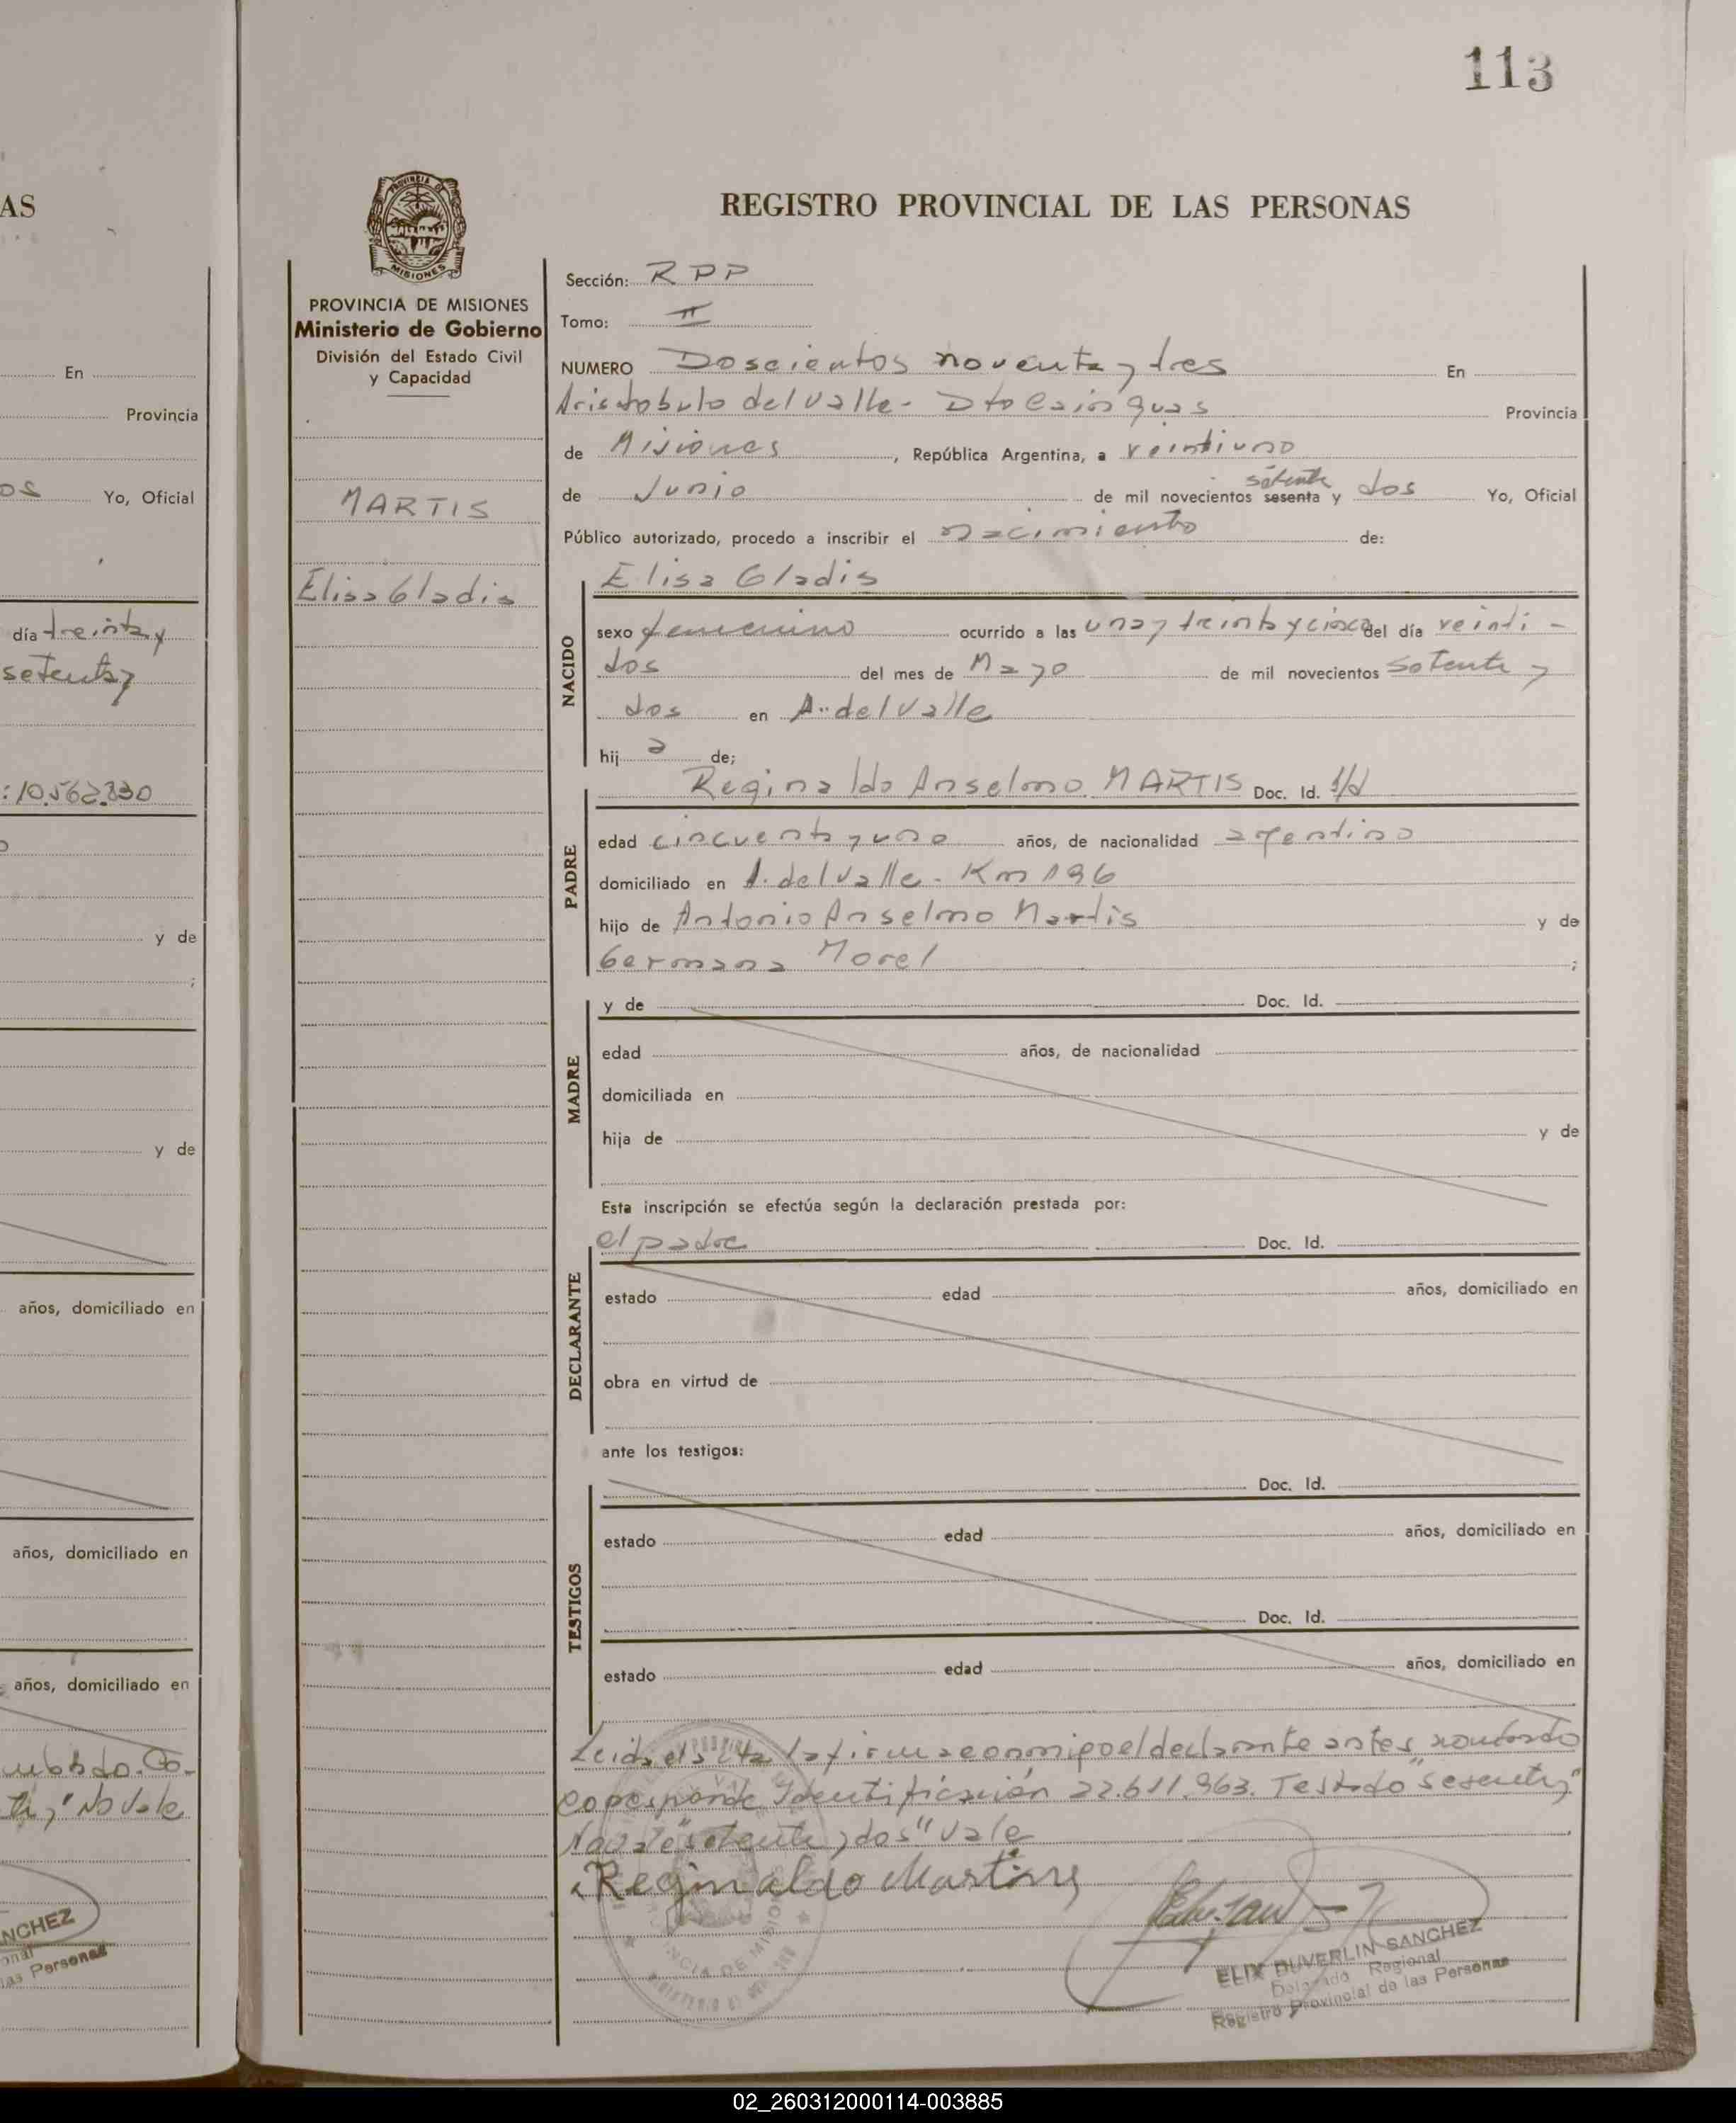 113
AS
REGISTRO PROVINCIAL DE LAS PERSONAS
PROVINCIA DE MISIONES
Ministerio de Gobierno
División del Estado Civil
y Capacidad
MARTIS
Elisa Gladis
Sección: RPP
Tomo: II
NUMERO Doscientos noventa y tres En
Aristobulo del valle - Dto Cainguas Provincia
de Misiones, República Argentina, a veintiuno
setenta
de Junio de mil novecientos sesenta y dos Yo, Oficial
Público autorizado, procedo a inscribir el nacimiento de:
Elisa Gladis
NACIDO
sexo femenino ocurrido a las una y treinta y cinco del día veinti-
dos del mes de Mayo de mil novecientos setenta y
dos en A. del Valle
hij a de;
Reginaldo Anselmo MARTIS Doc. Id. s/d
PADRE
edad cincuenta y uno años, de nacionalidad argentino
domiciliado en A. del Valle - Km 196
hijo de Antonio Anselmo Martis y de
Germana Morel ;
MADRE
y de Doc. Id.
edad años, de nacionalidad
domiciliada en
hija de y de
Esta inscripción se efectúa según la declaración prestada por:
el padre Doc. Id.
DECLARANTE
estado edad años, domiciliado en
obra en virtud de
ante los testigos:
Doc. Id.
TESTIGOS
estado edad años, domiciliado en
Doc. Id.
estado edad años, domiciliado en
Leida el acta la firma conmigo el declarante antes nombrado
Coresponde Identificación 22.611.963. Testado "sesenta y"
No vale "setenta y dos" vale
Reginaldo Martins
ELIX DUVERLIN SANCHEZ
Delegado Regional
Registro Provincial de las Personas
En
Provincia
os Yo, Oficial
día treinta y
setenta y
:10.562.830
y de
;
y de
años, domiciliado en
años, domiciliado en
años, domiciliado en
No vale
NCHEZ
onal
las Personas
02_260312000114-003885